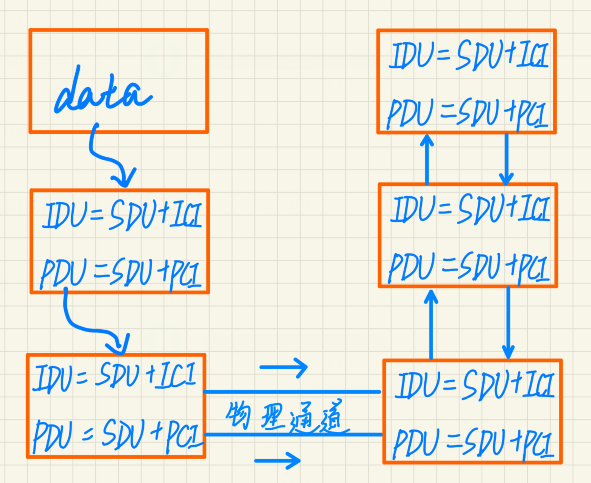 data
IDU=SDU+ICI
PDU=SDU+PCI
IDU=SDU+ICI
PDU=SDU+PCI
物理通道
IDU=SDU+ICI
PDU=SDU+PCI
IDU=SDU+ICI
PDU=SDU+PCI
IDU=SDU+ICI
PDU=SDU+PCI